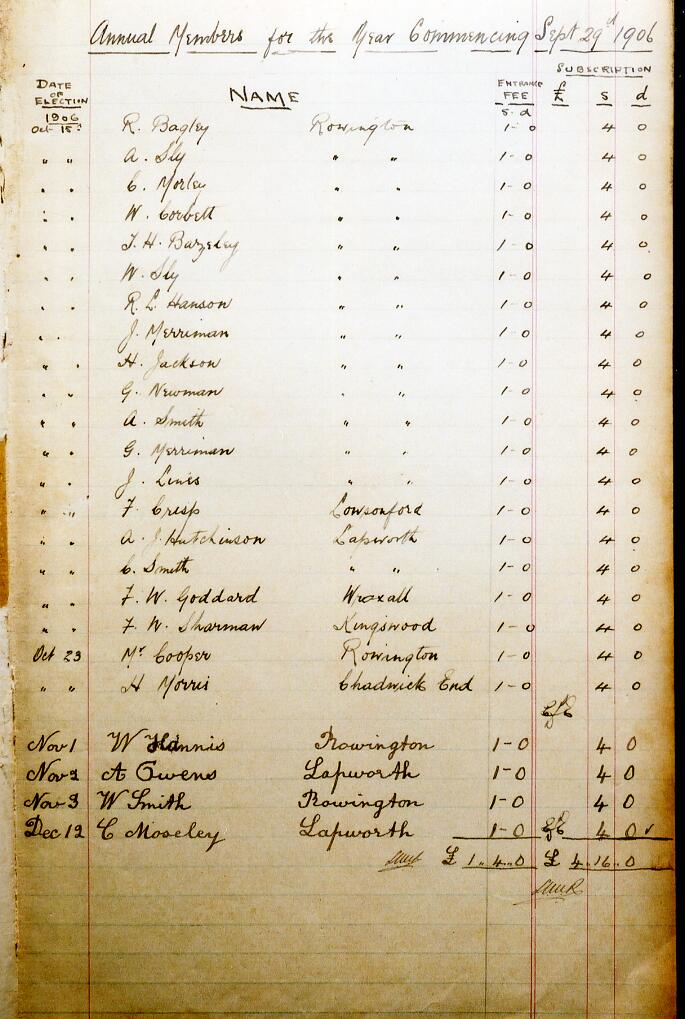 Annual Members for the Year Commencing Sept 29th 1906
SUBSCRIPTION
DATE OF ELECTION NAME ENTRANCE FEE £ s d
s. d
1906
Oct 15 R. Bagley Rowington 1-0 4 0
" " A. Sly " " 1-0 4 0
" " C. Morley " " 1-0 4 0
" " W. Corbett " " 1-0 4 0
" " T. H. Bazeley " " 1-0 4 0
" " W. Sly " " 1-0 4 0
" " R. L. Hanson " " 1-0 4 0
" " J. Merriman " " 1-0 4 0
" " H. Jackson " " 1-0 4 0
" " G. Newman " " 1-0 4 0
" " A. Smith " " 1-0 4 0
" " G. Merriman " " 1-0 4 0
" " J. Lines " " 1-0 4 0
" " F. Crisp Lowsonford 1-0 4 0
" " A. J. Hutchinson Lapworth 1-0 4 0
" " C. Smith " " 1-0 4 0
" " F. W. Goddard Wroxall 1-0 4 0
" " F. W. Sharman Kingswood 1-0 4 0
Oct 23 Mr Cooper Rowington 1-0 4 0
" " H Morris Chadwick End 1-0 4 0
Nov 1 W Hannis Rowington 1-0 4 0
Nov 2 A Owens Lapworth 1-0 4 0
Nov 3 W Smith Rowington 1-0 4 0
Dec 12 C Moseley Lapworth 1-0 4 0 ✓
£ 1..4..0 £ 4..16..0